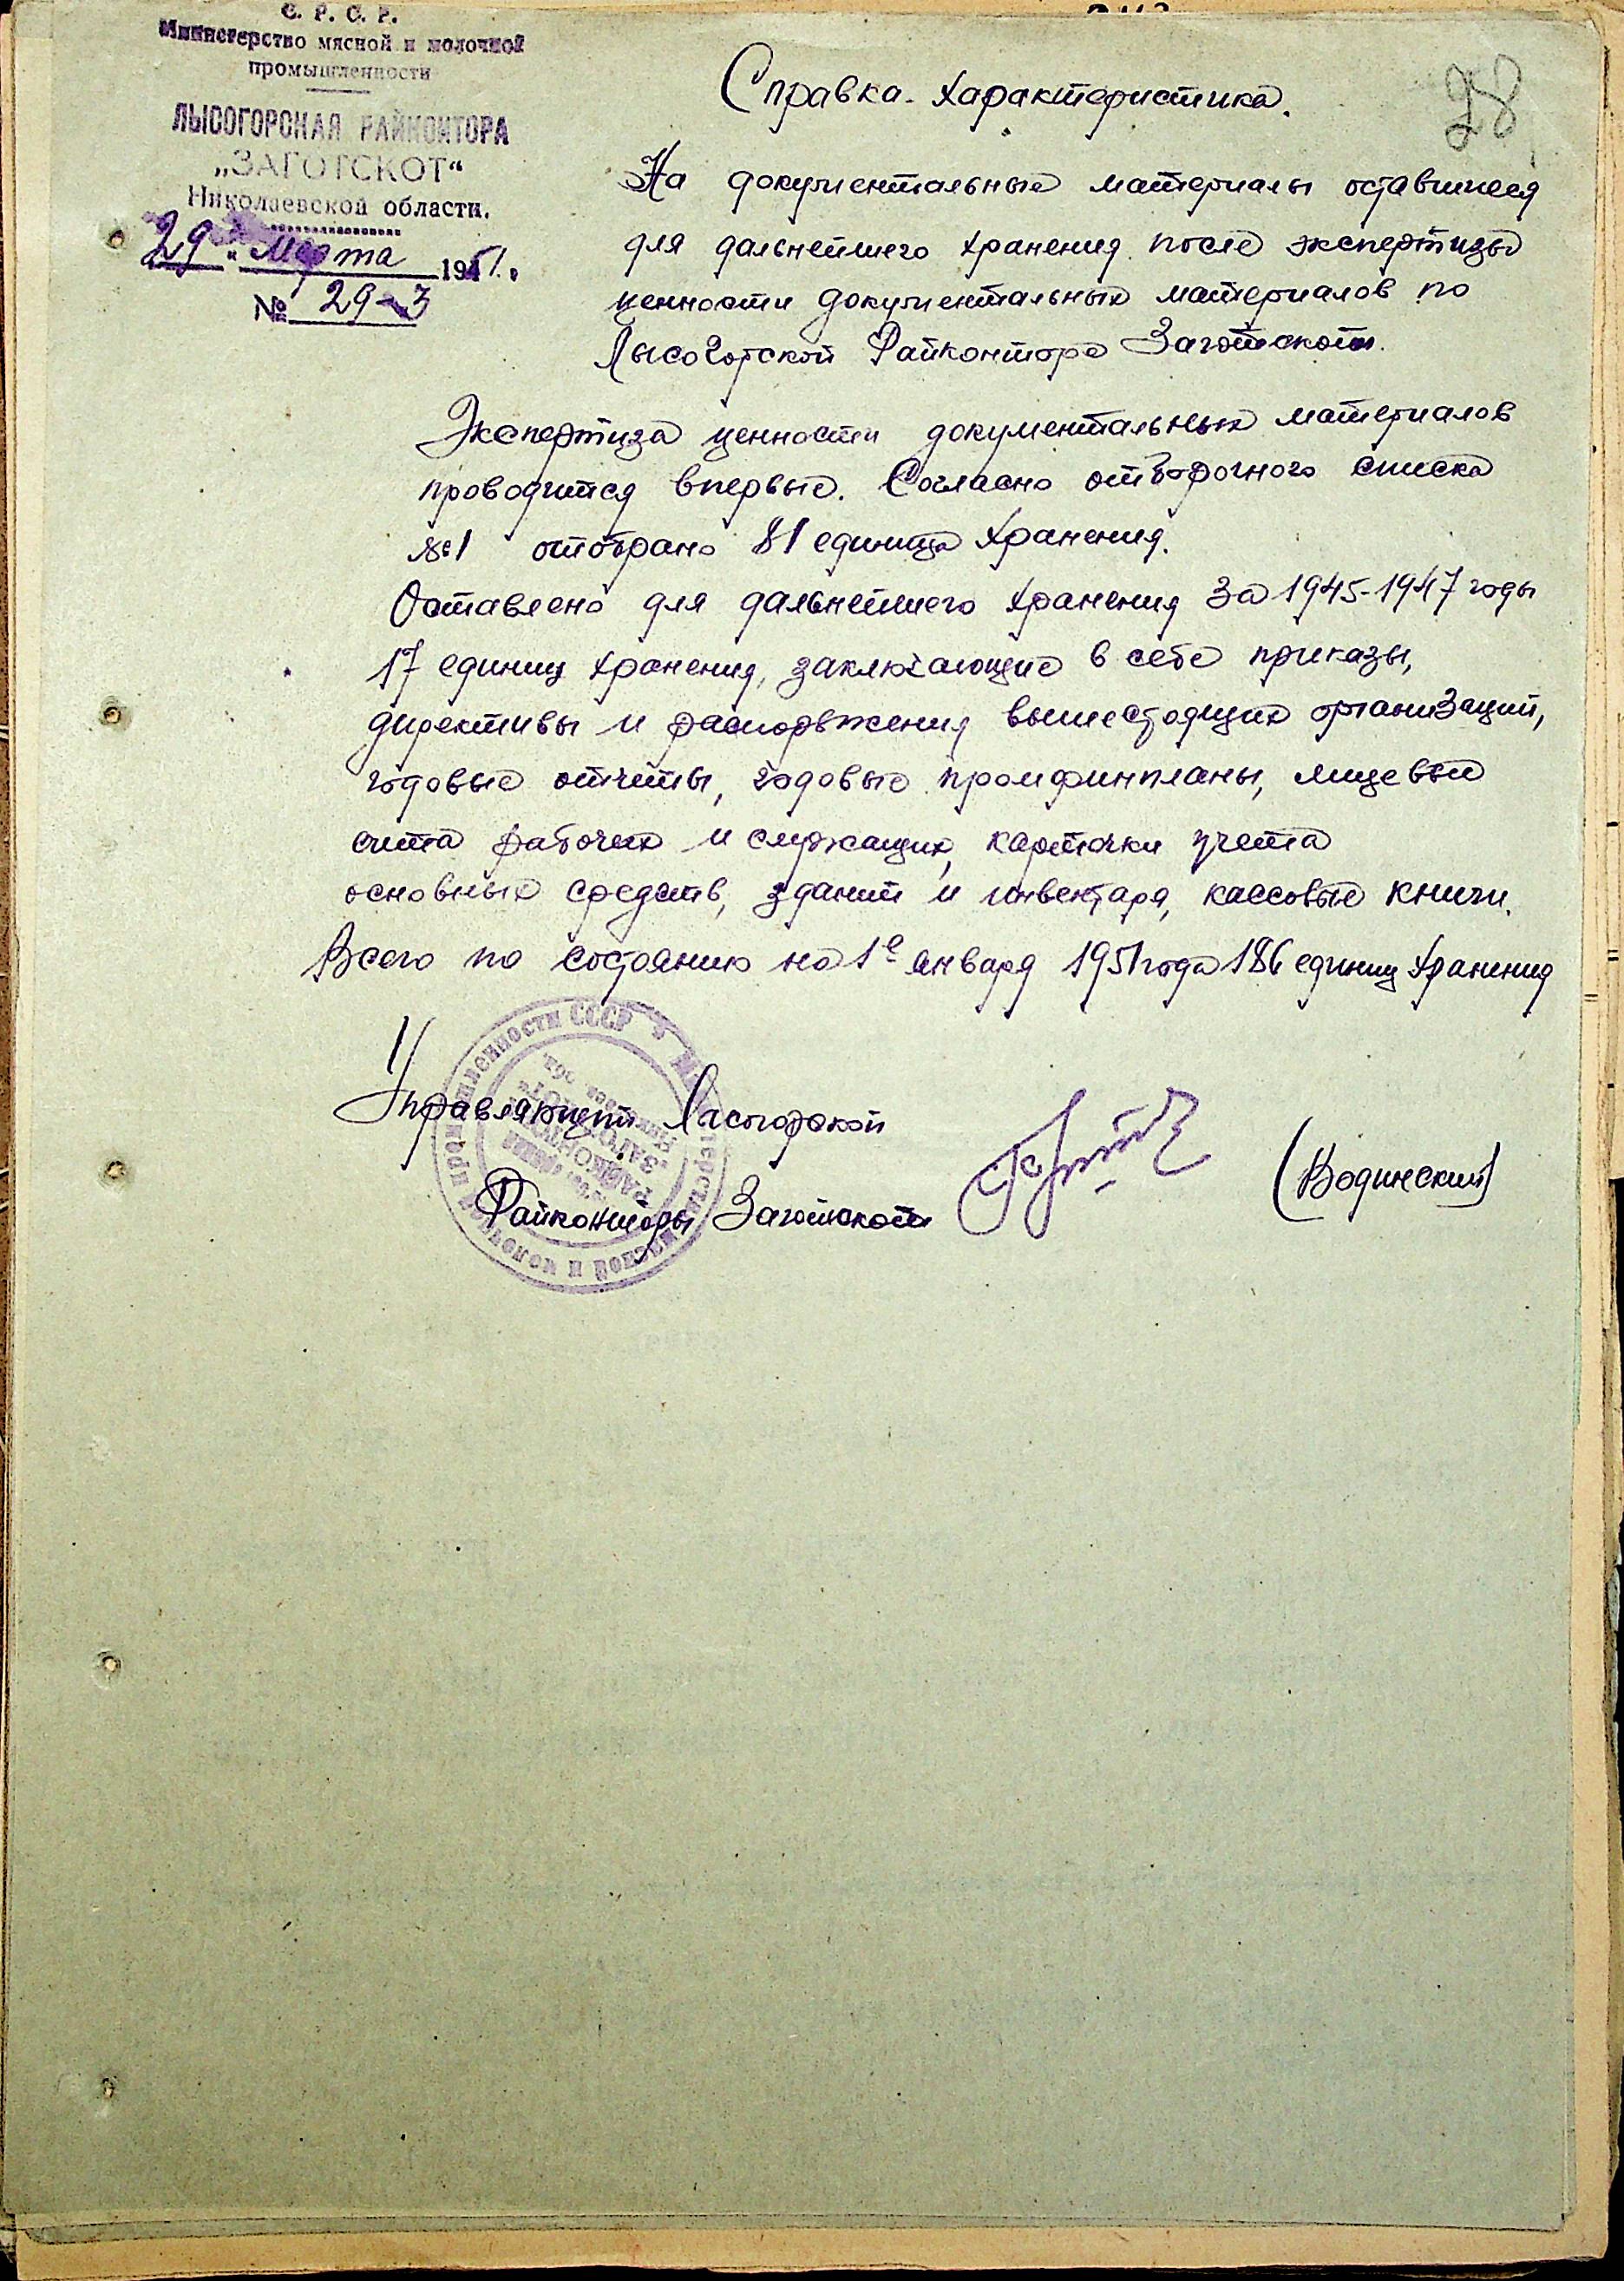 С. Р. С. Р.
Министерство мясной и молочной
промышленности
ЛЫСОГОРСКАЯ РАЙКОНТОРА
„ЗАГОТСКОТ“
Николаевской области.
29 " Марта 1951.
№ 29-3
28
Справка-характеристика.
На документальные материалы оставшиеся
для дальнейшего хранения после экспертизы
ценности документальных материалов по
Лысогорской Райконторе Заготскот.
Экспертиза ценности документальных материалов
проводится впервые. Согласно отборочного списка
№1 отобрано 81 единица хранения.
Оставлено для дальнейшего хранения за 1945-1947 годы
17 единиц хранения, заключающие в себе приказы,
директивы и распоряжения вышестоящих организаций,
годовые отчеты, годовые промфинпланы, лицевые
счета рабочих и служащих, карточки учета
основных средств, зданий и инвентаря, кассовые книги.
Всего по состоянию на 1е января 1951 года 186 единиц хранения
Управляющий Лысогорской
Райконторы Заготскот
(Водинский)